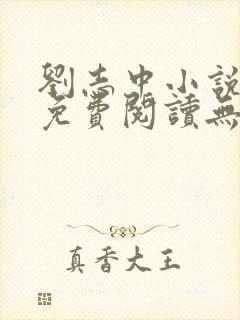 劉志中小說
免費閱讀無
真香大王